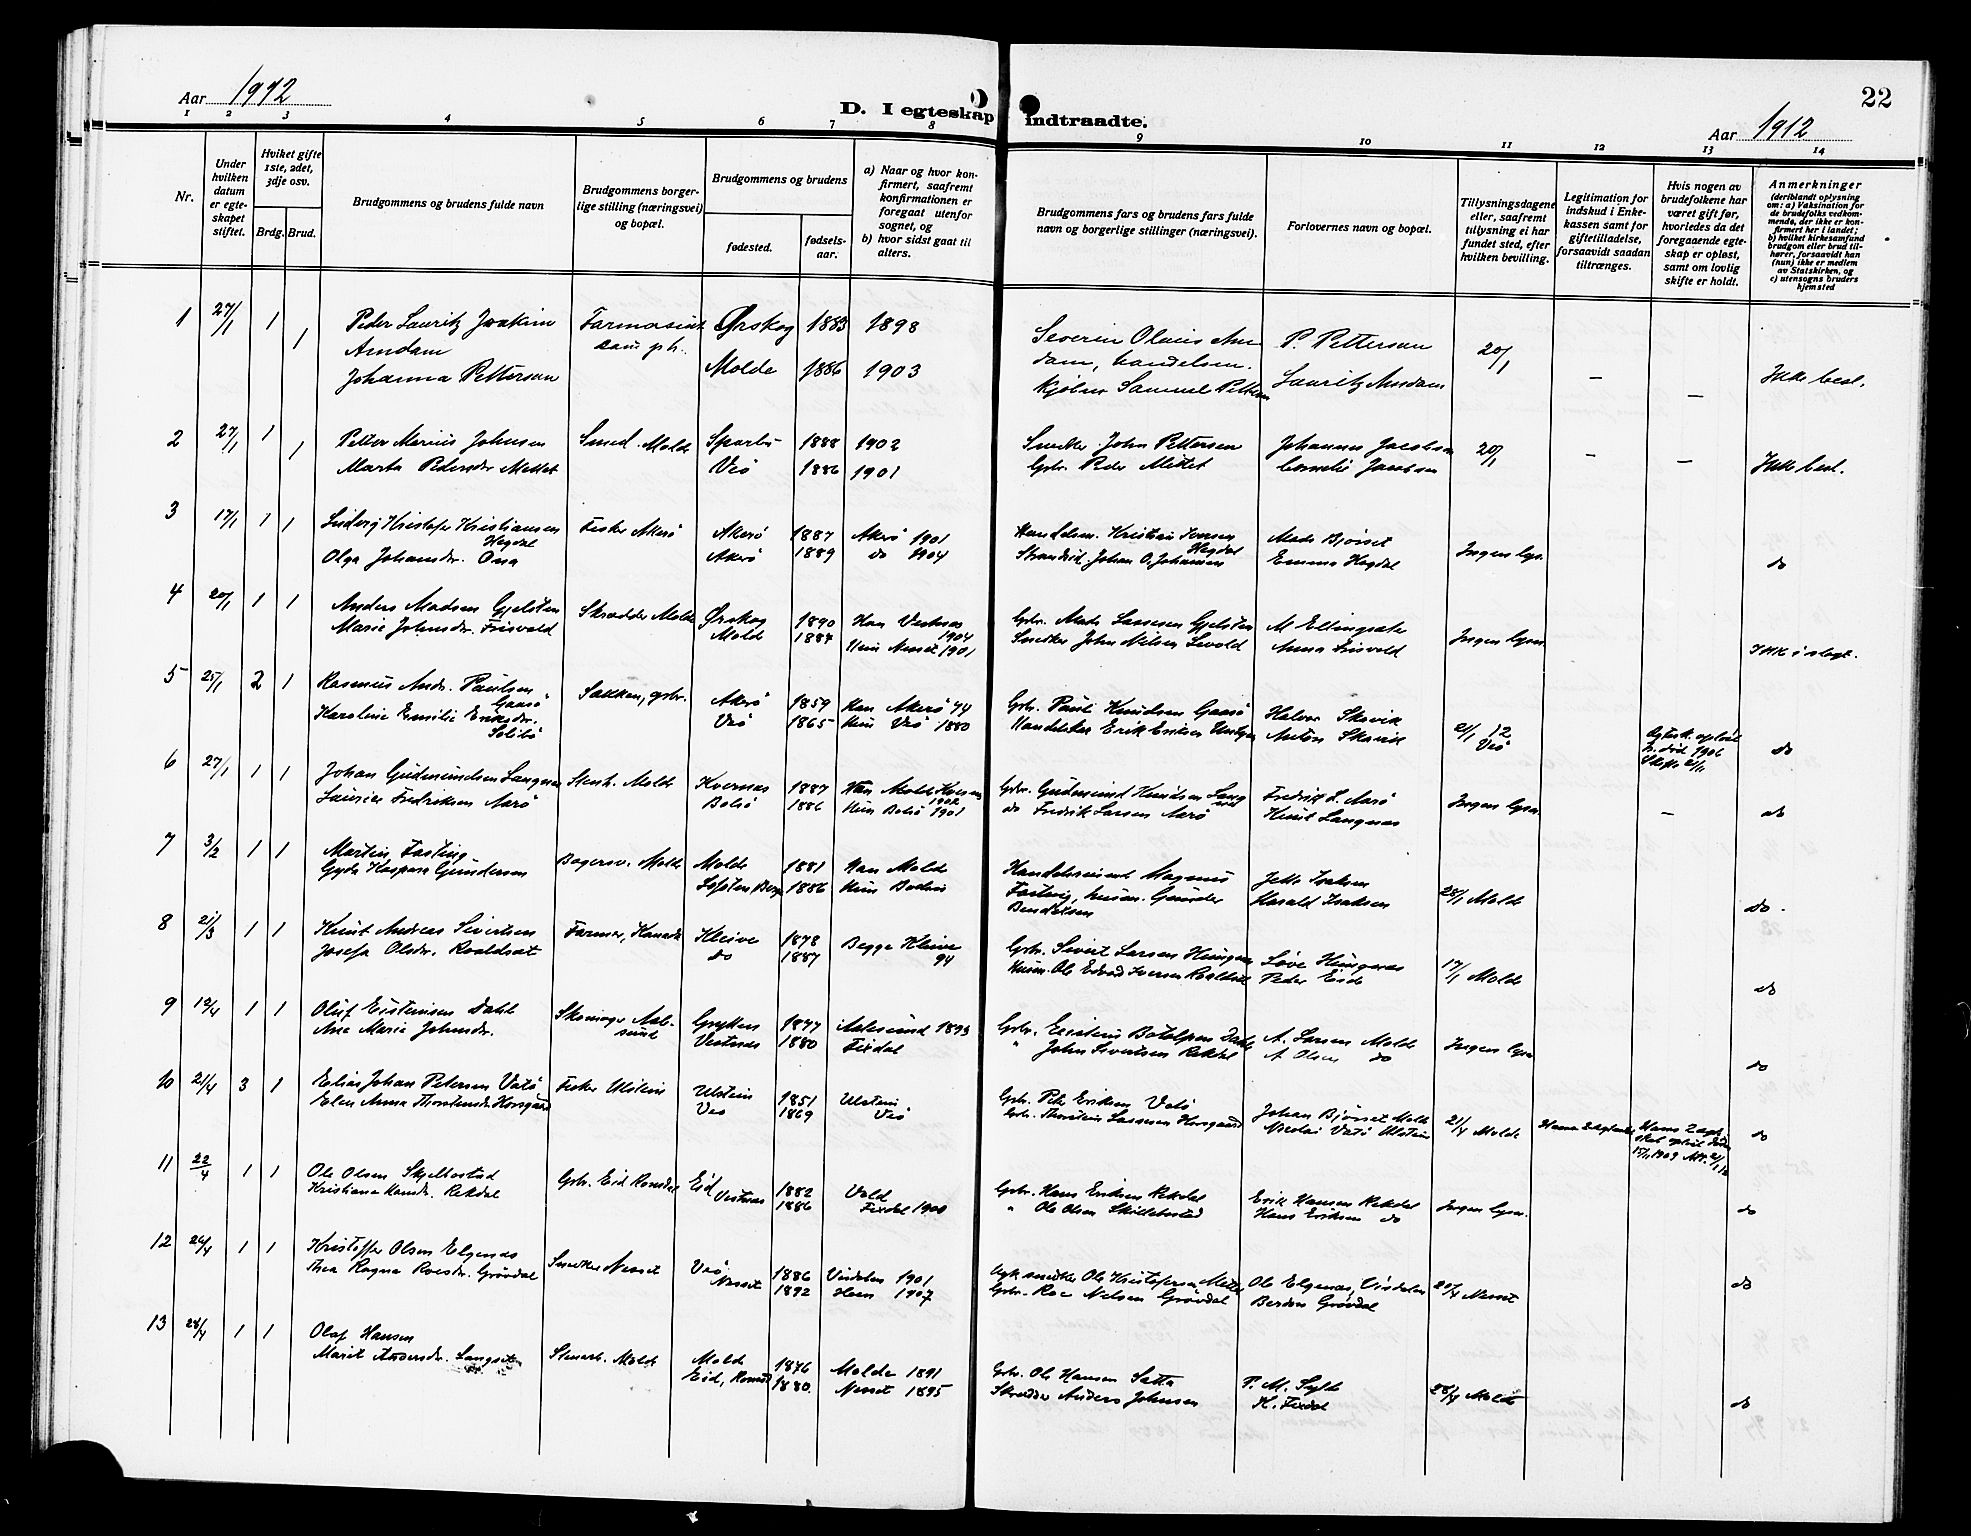 Aar 1912
D. I egteskap indtraadte.
22
Aar 1912
1 2 3 4 5 6 7 8 9 10 11 12 13 14
Nr.
Under hvilken datum er egteskapet stiftet.
Hviket gifte 1ste, 2det, 3dje osv.
Brdg. Brud.
Brudgommens og brudens fulde navn
Brudgommens borgerlige stilling (næringsvei) og bopæl.
Brudgommens og brudens
fødested.
fødselsaar.
a) Naar og hvor konfirmert, saafremt konfirmationen er foregaat utenfor sognet, og
b) hvor sidst gaat til alters.
Brudgommens fars og brudens fars fulde navn og borgerlige stillinger (næringsvei).
Forlovernes navn og bopæl.
Tillysningsdagene eller, saafremt tillysning ei har fundet sted, efter hvilken bevilling.
Legitimation for indskud i Enkekassen samt for giftetilladelse, forsaavidt saadan tiltrænges.
Hvis nogen av brudefolkene har været gift før, hvorledes da det foregaaende egteskap er opløst, samt om lovlig skifte er holdt.
Anmerkninger
(deriblandt oplysning om: a) Vaksination for de brudefolks vedkommende, der ikke er konfirmert her i landet; b) hvilket kirkesamfund brudgom eller brud tilhører, forsaavidt han (hun) ikke er medlem av Statskirken, og c) utensogns bruders hjemsted
1 27/1 1 1 Peder Lauritz Joakim Amdam Ørskog 1883 1898 Severin Olaus Amdam, handelsm. P. Pettersen 20/1 – –
Johanna Pettersen Molde 1886 1903 Samuel Pettersen Lauritz Amdam Ikke besl.
2 27/1 1 1 Petter Marius Johnsen Smed. Molde Sparbu 1888 1902 Snedker John Pettersen Johannes Jacobsen 20/1 – –
Marta Pedersdr Mittet Veø 1886 1901 Gbr. Peder Mittet Cornelie Jacobsen Ikke besl.
3 17/1 1 1 Ludvig Kristofer Kristiansen Hagdal Fisker Akerø Akerø 1887 Akerø 1901 Handelsm. Kristian Iversen Hagdal Mads Bjørset Ingen lysn.
Olga Johansdr. Ona Akerø 1889 do 1904 Strands. Johan O. Johansen Emma Hagdal do
4 20/1 1 1 Anders Madsen Gjelsten Skrædder Molde Ørskog 1890 Han Vestnes 1904 Gbr. Mads Lassesen Gjelsten M Ellingsæter Ingen lysn
Marie Johnsdr. Frisvold Molde 1884 Hun Nesset 1901 Snedker John Nilsen Anna Frisvold Ikke i slegt.
5 25/1 2 1 Rasmus Andr. Paulsen Gaasø Sekken, gbr. Akerø 1859 Han Akerø 74 Gbr. Paul Knudsen Gaasø Halvor Skavik 21/1 12 Veø
Karoline Emilie Eriksdr. Solibø Veø 1865 Hun Veø 1880 Erik Eriksen Anton Skavik do
6 27/1 1 1 Johan Gudmundsen Langnes Stenh. Molde Kvernes 1887 1902 Gbr. Gudmund Knudsen Fredrik L. Aarø Ingen lysn.
Laurice Fredriksen Aarø Bolsø 1886 Hun Bolsø 1901 do Fredrik Larsen Aarø Knut Langnes – do
7 3/2 1 1 Martin Fasting Bagersv. Molde Molde 1881 Han Molde Magnus Fasting, Jette Isaksen 28/1 Molde
Gyda Kaspara Gundersen 1886 Hun Bodin husm. Gunder Bendiksen Harald Isaksen do
8 21/3 1 1 Knut Andreas Sivertsen Farmer, Kanada Kleive 1878 Begge Kleive 94 Gbr. Sivert Larsen 17/1 Molde
Josefa Olsdr. Roaldset do 1887 Husm. Ole Edvard Iversen Roaldset Peder Eide do
9 12/4 1 1 Oluf Eisteinsen Dahl Aalesund Grytten 1877 Aalesund 1893 Gbr. A. Larsen Molde Ingen lysn
Ane Marie Johnsdr. Vestnes 1880 Fixdal " John Sivertsen Rekdal A Olsen do do
10 21/4 3 1 Elias Johan Petersen Vatø Fisker Ulstein Ulstein 1851 Ulstein Gbr. Peter Eriksen Vatø Johan Bjørset Molde 21/4 Molde
Elen Anna Thorstensdr Horsgaard Veø 1869 Veø Gbr. Thorstein Lassesen Horsgaard Nicolai Vatø Ulstein do
11 22/4 1 1 Ole Olsen Skjelbostad Gbr. Eid Romsdal Eid 1882 Vold Gbr. Hans Eriksen Rekdal Erik Hansen Rekdal Ingen lysn.
Kristiane Hansdr. Rekdal Vestnes 1886 Fixdal 1900 " Ole Olsen Skillebostad Hans Eriksen do do
12 26/4 1 1 Kristoffer Olsen Elgenes Snedker Nesset Veø 1886 Vistdalen 1901 Ole Elgenes, Visdalen 20/4 Nesset
Thea Ragna Roesdr. Grøvdal Nesset 1892 Hoem 1907 Gbr. Roe Nelsen Grøvdal Berdon Grøvdal do
13 28/4 1 1 Olaf Hansen Stenarb. Molde Molde 1876 Molde 1891 Gbr. Ole Hansen Sætta P. M. Sylte 28/4 Molde
Marit Andersdr. Langseten Eid, Romsd 1880 Nesset 1895 Skredder Anders Johnsen K. Fixdal do